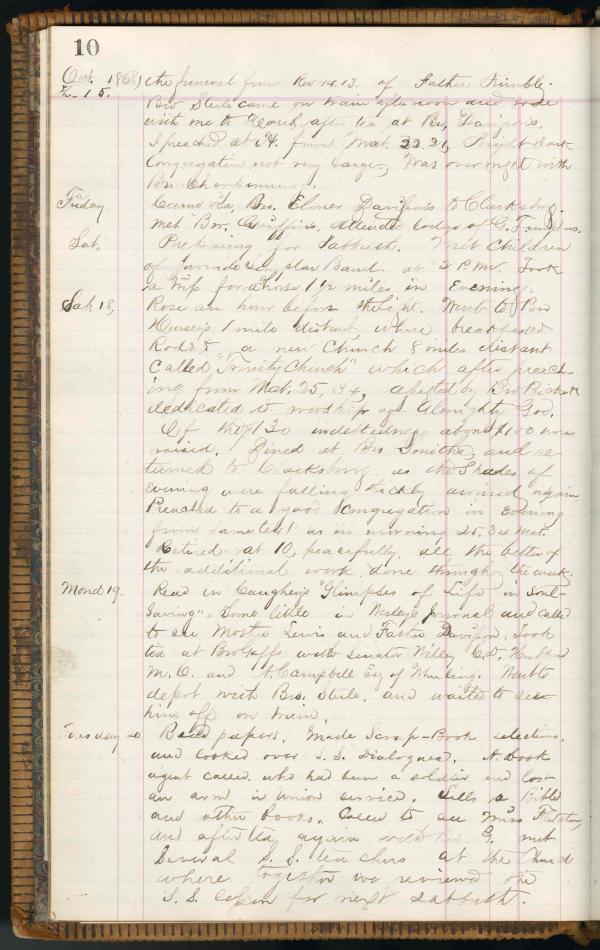 10
Oct. 1868, the funeral from Rev 14.13. of Father Kimble.
Th. 15. Bro Steile came on train afternoon and rode
with me to after tea at Bro. Davisson's.
I preached at H. from Mat. 22. Night dark
Congregation not very large, Was over night with
Bro.
Friday Came via, Bro. Elmer Davisson to Clarksbrg.
met Bro. Griffin, attended lodge of G. Templars.
Sat. Preparing for Sabbath. Visit Children
of Band. at 2 P.M. Took
a trip for a horse 1 1/2 miles in Evening.
Sab. 18, Rose an hour before the light. Went to Bro
1 mile distant where breakfasted
Rode to a new Church 8 miles distant
Called "Trinity Church" which after preach-
ing from Mat. 25, 34, assisted by Bro
dedicated to worship of Almighty God.
Of the 130 indebtedness about $100 was
raised. Dined at Bro Smiths, and re-
turned to Clarksburg as the Shades of
Evening were falling thickly around again
Preached to a good Congregation in Evening
from same text as in morning 25.34 Mat.
Retired at 10, peacefully, all the better of
the additional work done through the week.
Mond 19. Read in Caughey's "Glimpses of Life in Soul-
Saving". Some little in Wesley's Journal and called
to see Mother Lewis and Father Davisson. Took
tea at Bro Goffs with Senator Willey C.D. Hubbard
M.C. and A. Campbell Esq of Wheeling. Went to
depot with Bro. Steile. and waited to see
him off on train.
Tuesday 20 Read papers. Made Scrap-Book selections.
and looked over S.S. Dialogues. A book
agent called. who had been a soldier and lost
an arm in Union service. Sells a Bible
and other books. Called to see Miss
and after tea again with G. met
Several S.S. teachers at the Church
where together we reviewed the
S.S. lesson for next sabbath.